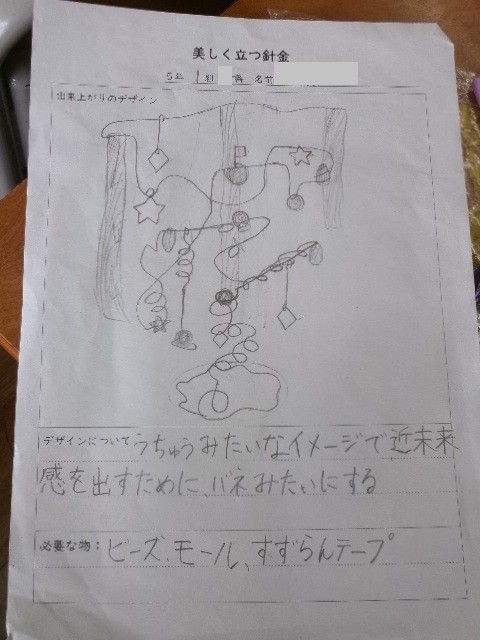 美しく立つ針金
5年 1組 番 名前
出来上がりのデザイン
デザインについて うちゅうみたいなイメージで近未来
感を出すために、バネみたいにする
必要な物： ビーズ、モール、すずらんテープ